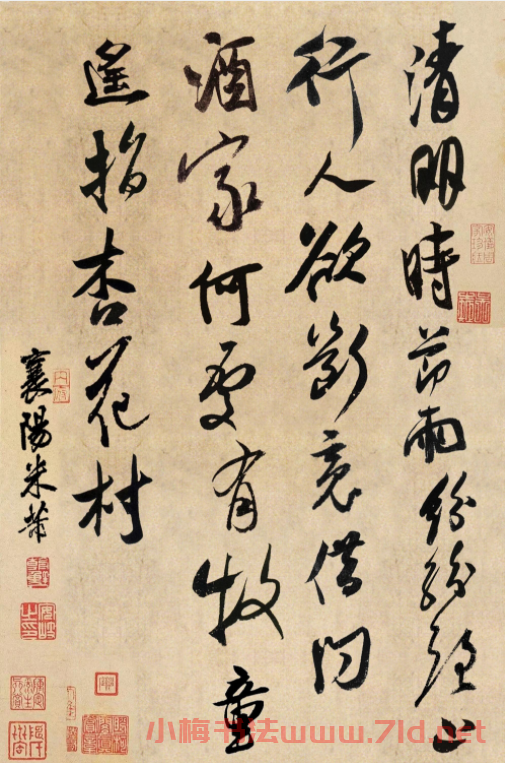 清明時節雨紛紛路上
行人欲斷魂借問
酒家何處有牧童
遙指杏花村
襄陽米芾
小梅书法www.7ld.net